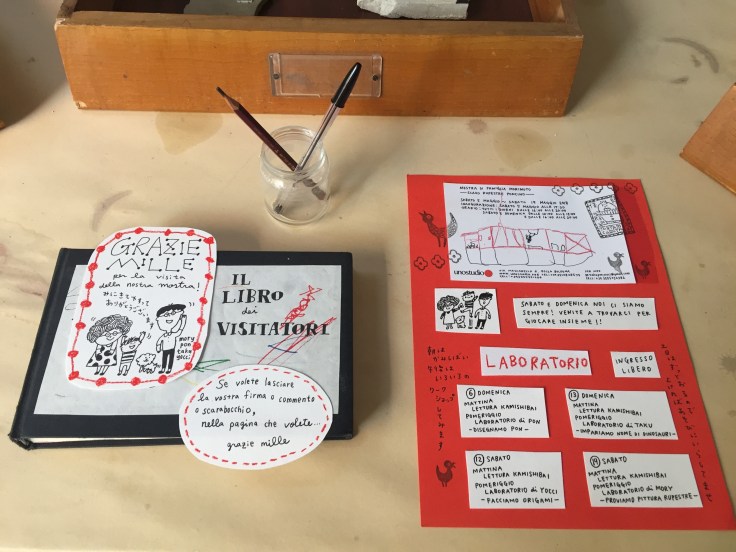 GRAZIE
MILLE
per la visita
della nostra mostra!
みにきてくれて
ありがとうございます
mory
pon
taku
yocci
IL
LIBRO
dei
VISITATORI
Se volete lasciare
la vostra firma o commento
o scarabocchio,
nella pagina che volete...
grazie mille
MOSTRA DI FAMIGLIA
SABATO 5 MAGGIO - SABATO 19 MAGGIO
unostudio
SABATO E DOMENICA NOI CI SIAMO
SEMPRE! VENITE A TROVARCI PER
GIOCARE INSIEME!!
LABORATORIO
INGRESSO
LIBERO
ワークショップ
してみます
⑥ DOMENICA
MATTINA
LETTURA KAMISHIBAI
POMERIGGIO
LABORATORIO di PON
-DISEGNAMO PON-
⑬ DOMENICA
MATTINA
LETTURA KAMISHIBAI
POMERIGGIO
LABORATORIO di TAKU
-IMPARIAMO NOME DI DINOSAURI-
⑫ SABATO
MATTINA
LETTURA KAMISHIBAI
POMERIGGIO
LABORATORIO di YOCCI
-FACCIAMO ORIGAMI-
⑲ SABATO
MATTINA
LETTURA KAMISHIBAI
POMERIGGIO
LABORATORIO di MORY
-PROVIAMO PITTURA RUPESTRE-